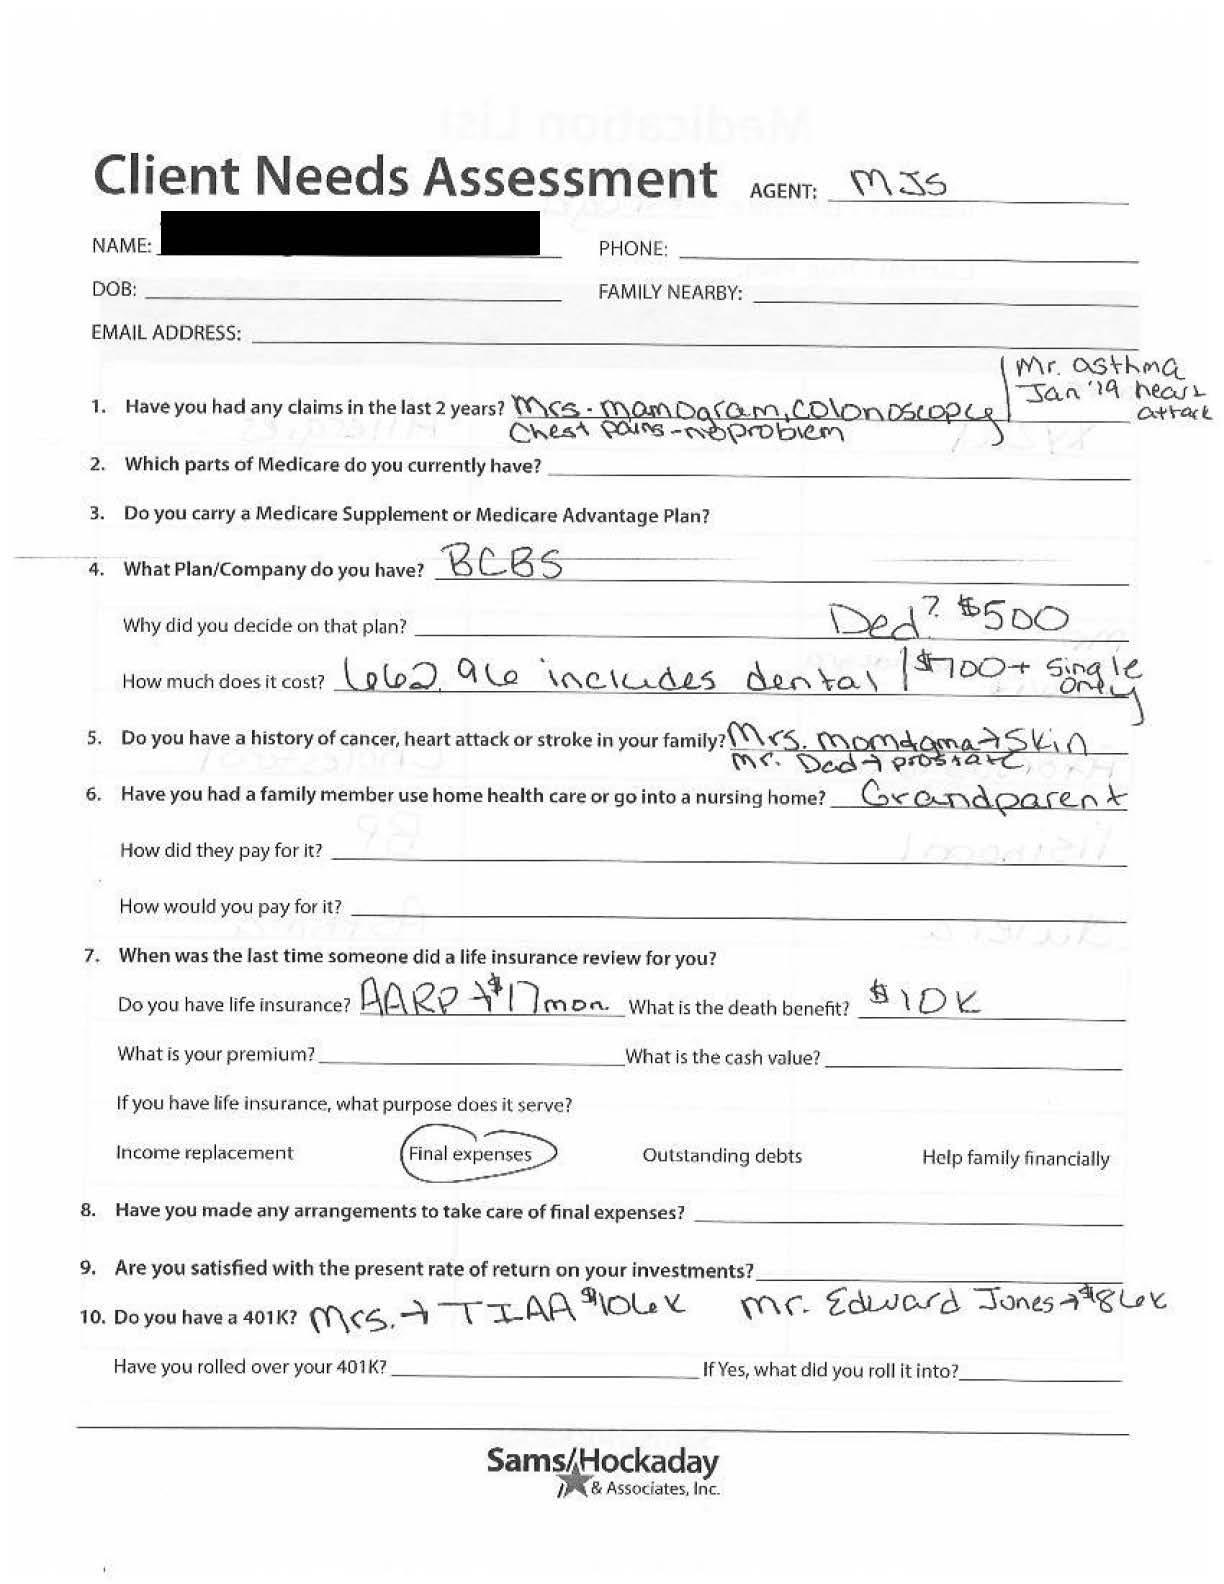 Client Needs Assessment AGENT: MJS
NAME: PHONE:
DOB: FAMILY NEARBY:
EMAIL ADDRESS:
Mr. asthma
Jan '19 heart
attack
1. Have you had any claims in the last 2 years? Mrs - mamogram, colonoscopy
Chest pains - no problem
2. Which parts of Medicare do you currently have?
3. Do you carry a Medicare Supplement or Medicare Advantage Plan?
4. What Plan/Company do you have? BCBS
Why did you decide on that plan? Ded? $500
How much does it cost? 662.96 includes dental | $700+ single
only
5. Do you have a history of cancer, heart attack or stroke in your family? Mrs. mom+gma → skin
mr. Dad → prostate
6. Have you had a family member use home health care or go into a nursing home? Grandparent
How did they pay for it?
How would you pay for it?
7. When was the last time someone did a life insurance review for you?
Do you have life insurance? AARP → $17 mon. What is the death benefit? $10K
What is your premium? What is the cash value?
If you have life insurance, what purpose does it serve?
Income replacement Final expenses Outstanding debts Help family financially
8. Have you made any arrangements to take care of final expenses?
9. Are you satisfied with the present rate of return on your investments?
10. Do you have a 401K? Mrs. → TIAA $106K Mr. Edward Jones → $86K
Have you rolled over your 401K? If Yes, what did you roll it into?
Sams/Hockaday
& Associates, Inc.